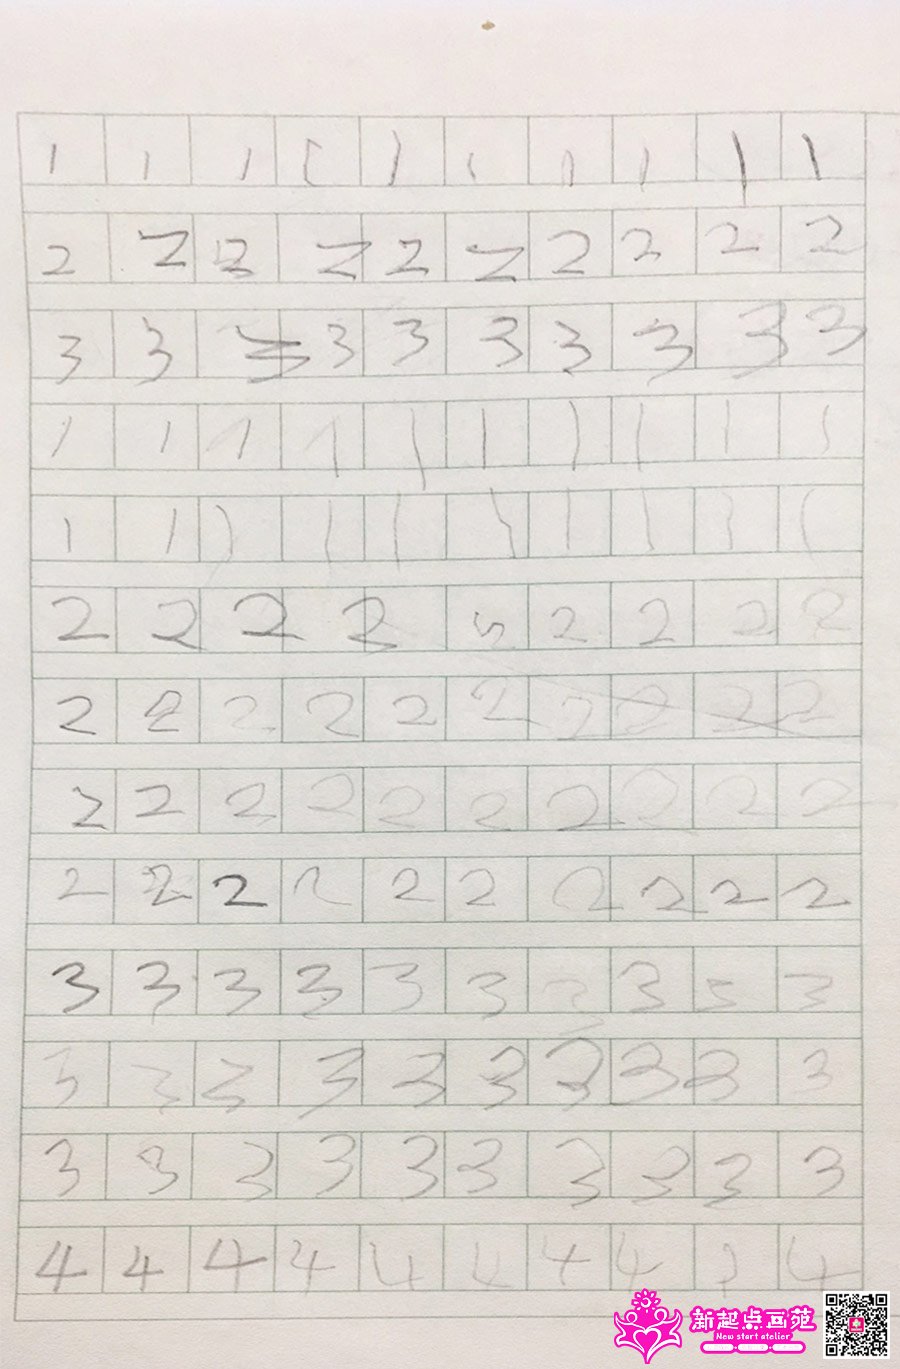 1 1 1 1 1 1 1 1 1 1
2 2 2 2 2 2 2 2 2 2
3 3 3 3 3 3 3 3 3 3
1 1 1 1 1 1 1 1 1 1
1 1 1 1 1 1 1 1 1 1
2 2 2 2 2 2 2 2 2
2 2 2 2 2 2 2 2 2 2
2 2 2 2 2 2 2 2 2 2
2 2 2 2 2 2 2 2 2 2
3 3 3 3 3 3 3 3 3 3
3 3 3 3 3 3 3 3 3 3
3 3 3 3 3 3 3 3 3 3
4 4 4 4 4 4 4 4 4
新起点画苑
New start atelier